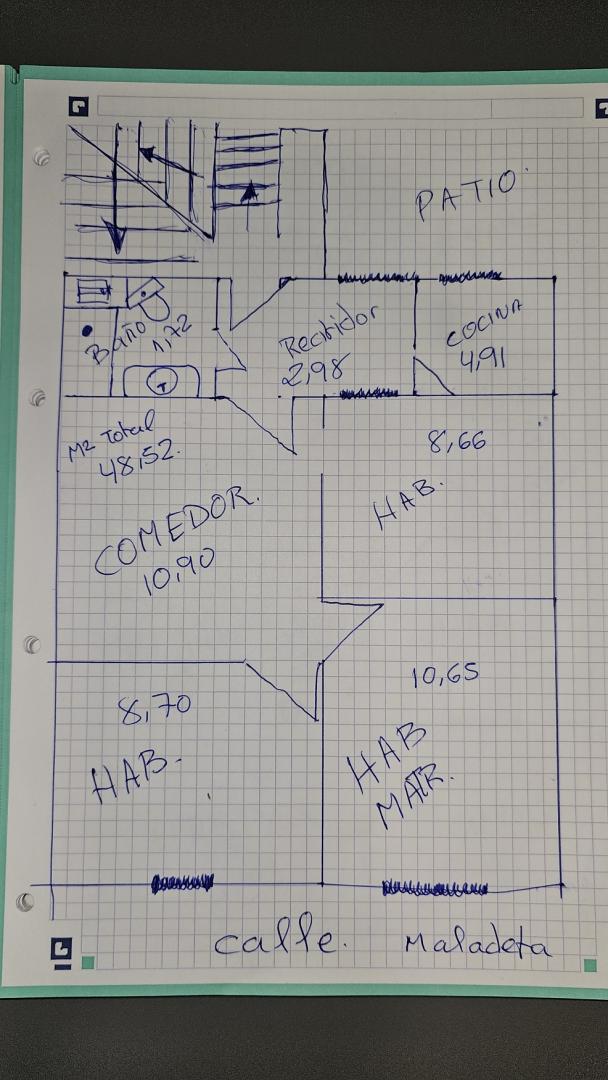 PATIO
Recibidor
2,98
COCINA
4,91
Baño
1,72
M² Total
48,52.
8,66
HAB.
COMEDOR.
10,90
8,70
HAB.
10,65
HAB
MATR.
calle. Maladeta